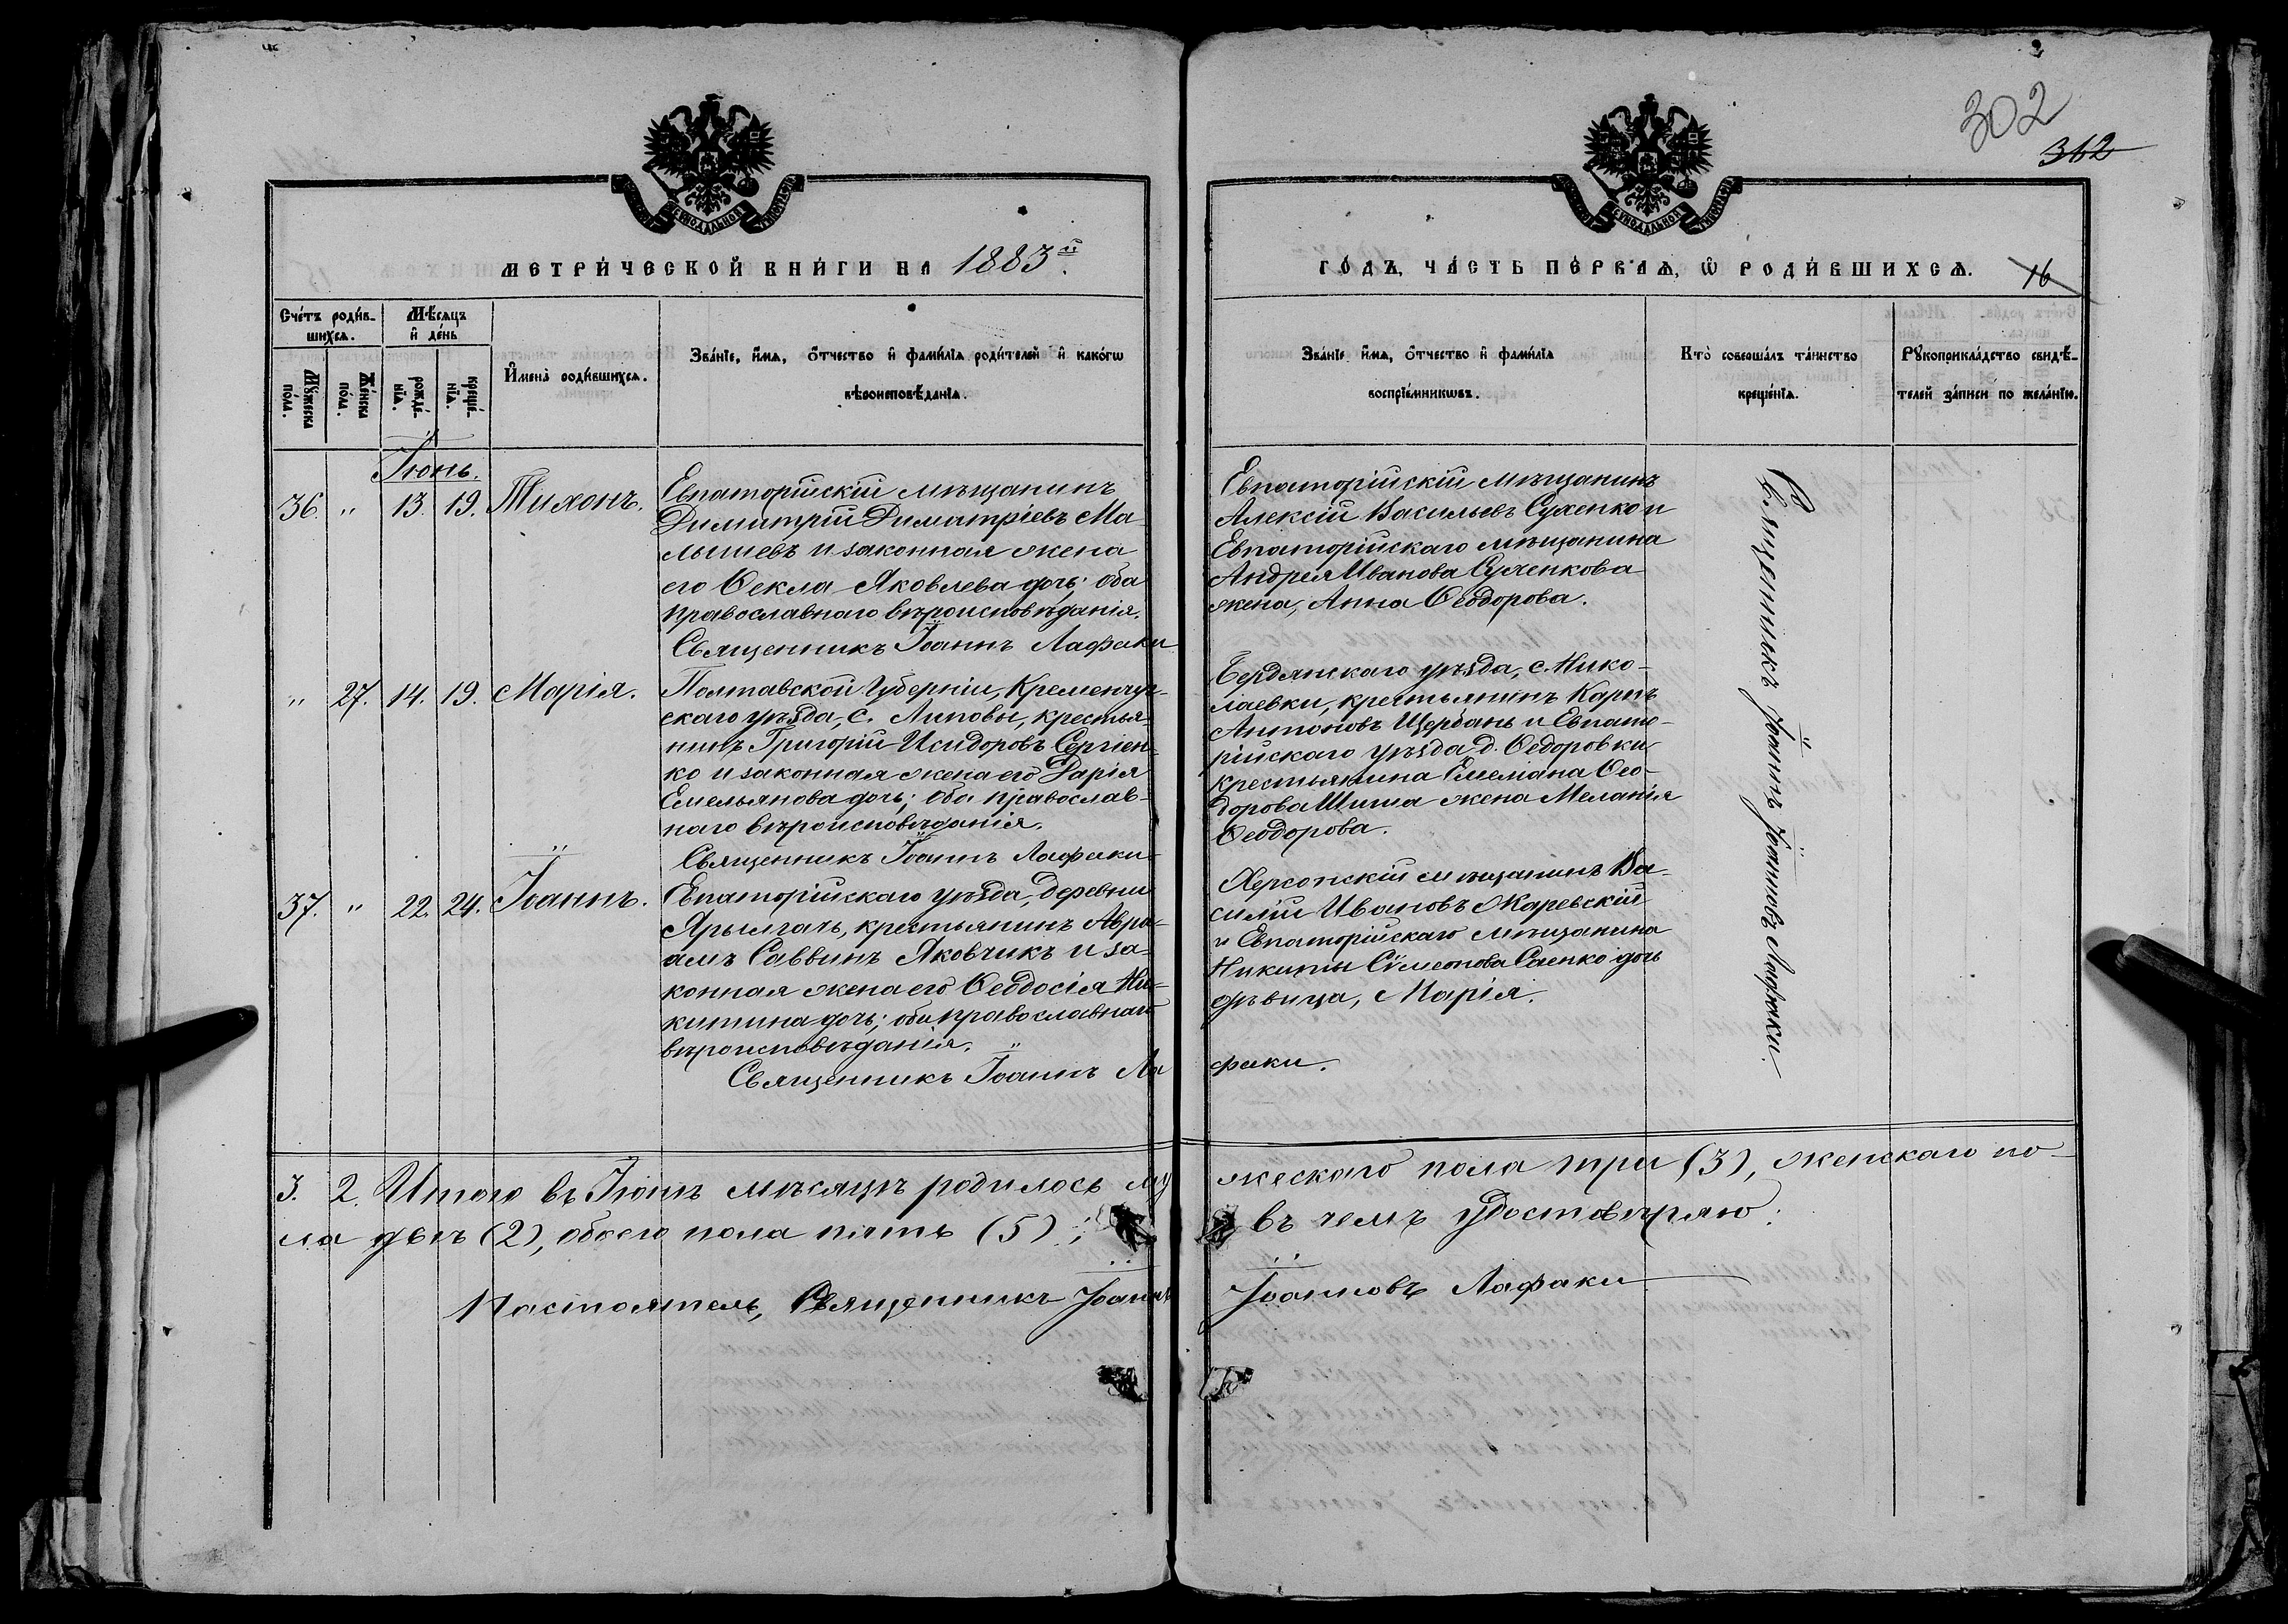 302
362
МЕТРИ́ЧЕСКОЙ КНИ́ГИ НА 1883й.
ГО́ДЪ, ЧА́СТЬ ПЕ́РВАѦ, Ѿ РОДИ́ВШИХСѦ. 16
Сче́тъ роди́в-
шихсѧ.
Мѣ́сѧцъ
и҆ де́нь
Мꙋ́жеска
по́ла.
Же́нска
по́ла.
рожде́-
нїѧ.
креще́-
нїѧ.
И҆мена̀ роди́вшихсѧ.
Зва́нїе, и҆́мѧ, ѻ҆́тчество и҆ фами́лїѧ роди́телей и҆ како́гѡ
вѣроисповѣ́данїѧ.
Зва́нїе, и҆́мѧ, ѻ҆́тчество и҆ фами́лїѧ
воспрїе́мникѡвъ.
Кто̀ соверша́лъ та́инство
креще́нїѧ.
Рꙋкоприкла́дство свидѣ́-
телей за́писи по жела́нїю.
Іюнь.
36. " 13. 19. Тихонъ.
Евпаторійскій мѣщанинъ
Димитрій Димитріевъ Ма-
лышевъ и законная жена
его Ѳекла Яковлева дочь; оба
православнаго вѣроисповѣданія.
Священникъ Іоаннъ Лафаки
Евпаторійскій мѣщанинъ
Алексій Васильевъ Сухенко и
Евпаторійскаго мѣщанина
Андрея Иванова Сухенкова
жена, Анна Ѳеодорова.
" 27. 14. 19. Марія.
Полтавской Губерніи, Кременчуг-
скаго уѣзда, с. Липовы, крестья-
нинъ Григорій Исидоровъ Сергіен-
ко и законная жена его Дарія
Емельянова дочь; оба православ-
наго вѣроисповѣданія.
Священникъ Іоаннъ Лафаки
Бердянскаго уѣзда, с. Нико-
лаевки, крестьянинъ Карпъ
Антоновъ Щербань и Евпато-
рійскаго уѣзда д. Ѳедоровки
крестьянина Емеліана Ѳео-
дорова Шиша жена Меланія
Ѳеодорова.
37. " 22. 24. Іоаннъ.
Евпаторійскаго уѣзда, деревни
Ярылгачь, крестьянинъ Авра-
амъ Саввинъ Яковчикъ и за-
конная жена его Ѳеодосія Ни-
китина дочь; оба православнаго
вѣроисповѣданія.
Священникъ Іоаннъ Ла
факи.
Херсонскій мѣщанинъ Ва-
силій Ивановъ Жаревскій
и Евпаторійскаго мѣщанина
Никиты Сѵмеонова Саенко дочь
дѣвица, Марія.
Священникъ Іоаннъ Іоанновъ Лафаки.
3. 2. Итого въ Іюнѣ мѣсяцѣ родилось му
жескаго пола три (3), женскаго по-
ла двѣ (2), обоего пола пять (5);
въ чемъ удостовѣряю:
Настоятель, Священникъ Іоаннъ
Іоанновъ Лафаки